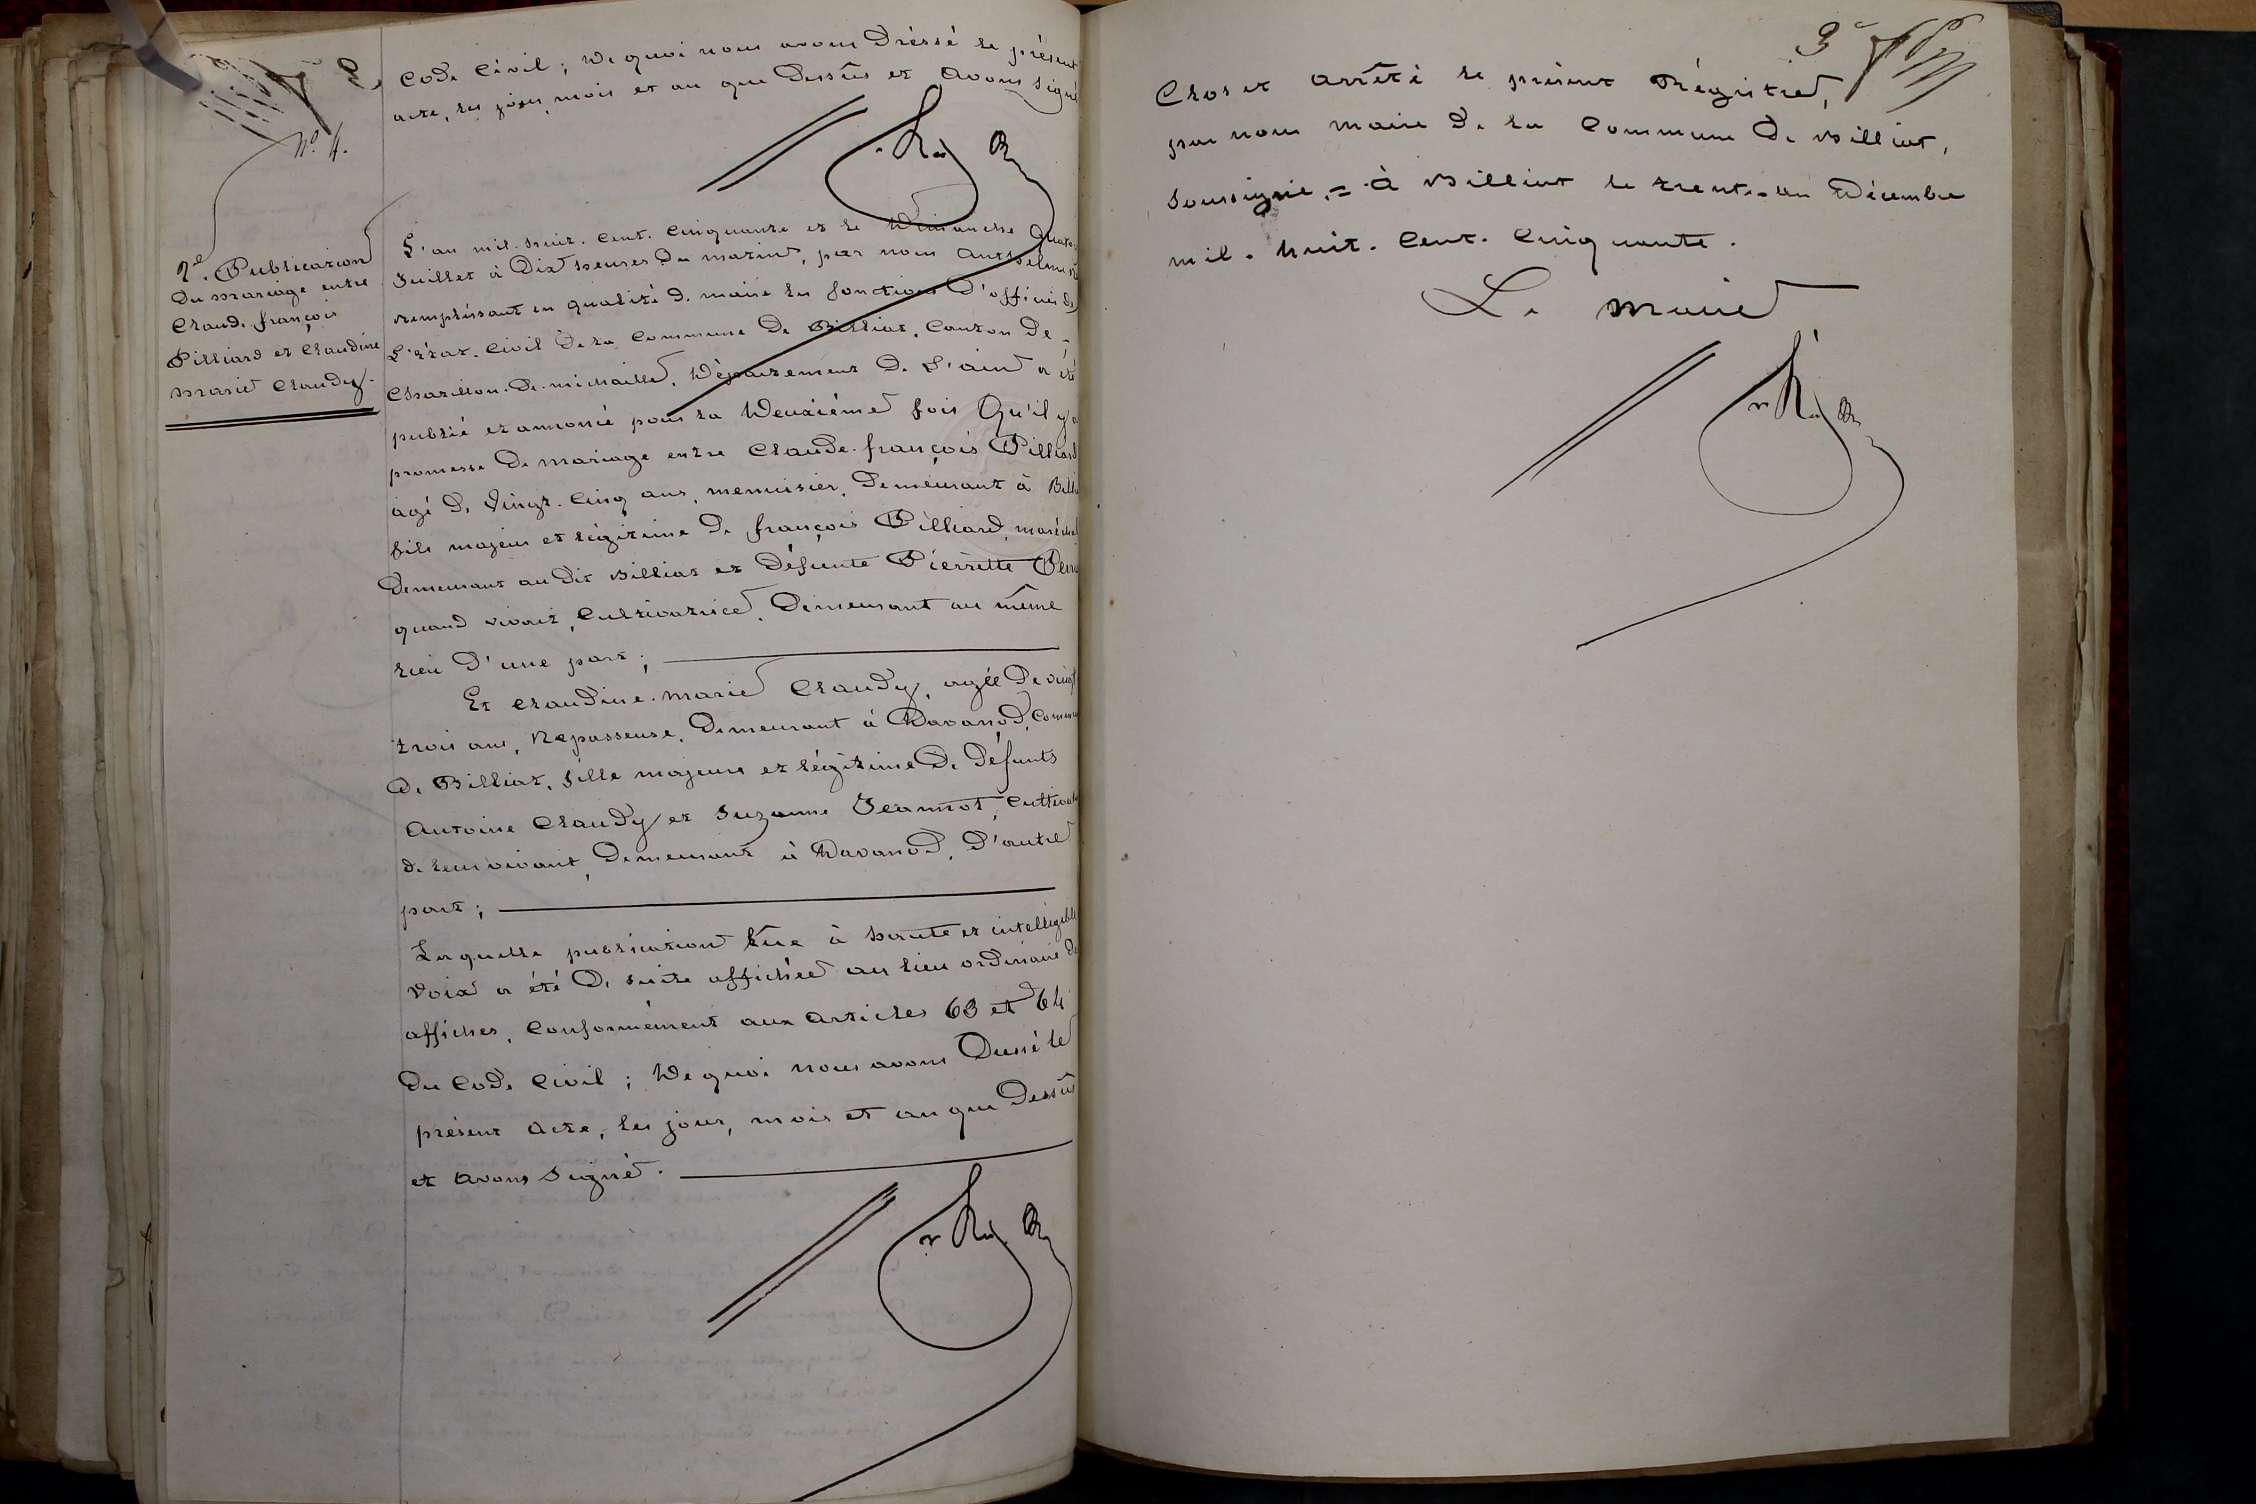 2
Code Civil ; De quoi nous avons Dréssé le présent
acte, les jour, mois et an que Dessûs et avons signé
N° 4.
2e. Publication
Du mariage entre
Claude françois
Pilliard et Claudine
marie Claudy.
L'an mil. huit. Cent. Cinquante et le Dimanche quatorze
Juillet à Dix heures Du matin, par nous Anthelme
remplissant en qualité de maire les fonctions D'officier de
L'état. Civil De la Commune De Billiat, Canton De
Chatillon. De. michaille, Département De L'ain a été
publié et annoncé pour la Deuxiéme fois Qu'il y a
promesse De mariage entre Claude. françois Pilliard
agé De Vingt. Cinq ans, menuisier, Demeurant à Billiat
fils majeur et légitime De françois Pilliard, maréchal
Demeurant au Dit Billiat et Défunte Pierrette
quand vivait, Cultivatrice, Demeurant au même
lieu D'une part ;
Et Claudine. marie Claudy, agée De vingt
trois ans, Repasseuse, Demeurant à Davanod, Commune
De Billiat, fille majeure et légitime De Défunts
Antoine Claudy et Suzanne Jeannot, Cultivateurs
de leur vivant, Demeurant à Davanod, D'autre
part ;
Laquelle publication lûe à haute et intelligible
voix a été De suite affichée au lieu ordinaire des
affiches, Conformément aux articles 63 et 64
Du Code Civil ; De quoi nous avons Dressé le
présent acte, les jour, mois et an que Dessûs
et avons signé.
3e
Clos et arrêté le présent Régistre,
par nous maire De la Commune De Billiat,
soussigné. = à Billiat le trente. un Décembre
mil. huit. Cent. Cinquante.
Le maire